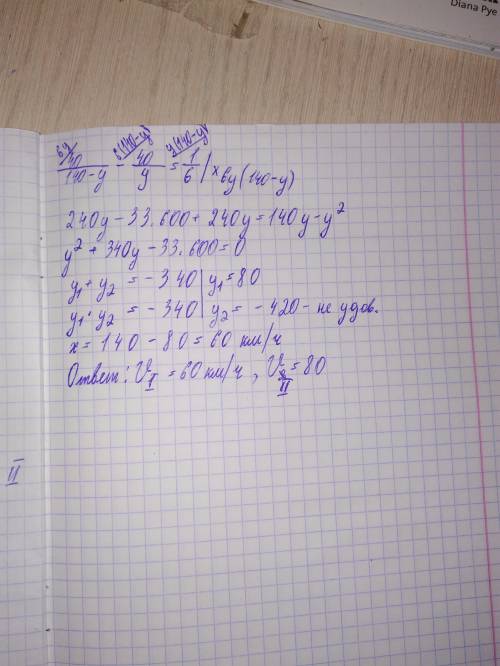 Diana Pye
6y 6(140-y) y(140-y)
40/(140-y) - 40/y = 1/6 | × 6y(140-y)
240y - 33.600 + 240y = 140y - y²
y² + 340y - 33.600 = 0
y₁ + y₂ = - 340 | y₁ = 80
y₁ · y₂ = - 340 | y₂ = - 420 - не удов.
x = 140 - 80 = 60 км/ч
Ответ: V_I = 60 км/ч, V_II = 80
II